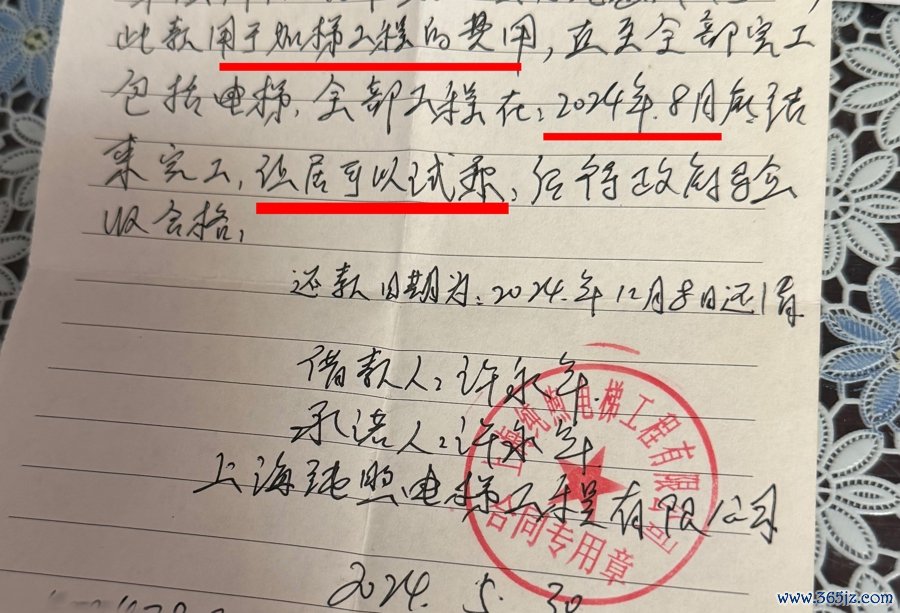 此款用于加梯工程的费用，直至全部完工
包括电梯，全部工程在：2024年.8月底结
束完工，让居可以试乘，经特政府部会
收合格，
还款日期为：2024.年12月8日还清
借款人：许永年
承诺人：许永年
上海纯熙电梯工程有限公司
2024. 5. 30
上海纯熙电梯工程有限公司
合同专用章
www.365jz.com